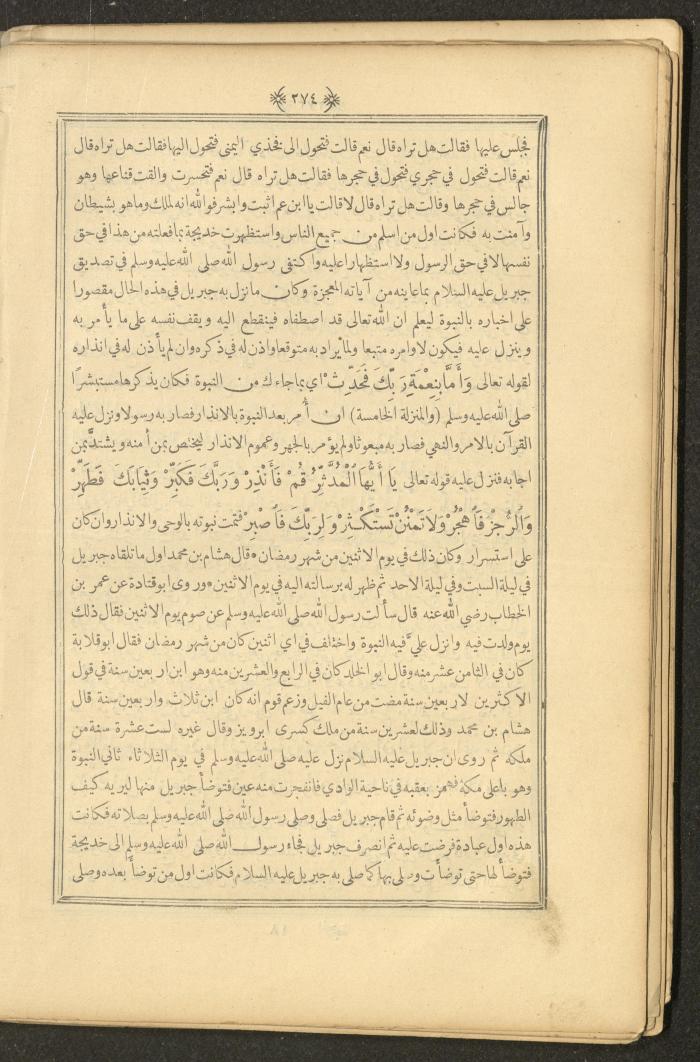 ٢٧٤
فجلس عليها فقالت هل تراه قال نعم قالت فتحول الى فخذي اليمنى فتحول اليها فقالت هل تراه قال
نعم قالت فتحول في حجري فتحول في حجرها فقالت هل تراه قال نعم فتحسرت والقت قناعها وهو
جالس في حجرها وقالت هل تراه قال لا قالت يا ابن عم اثبت وابشر فوالله انه لملك وما هو بشيطان
وآمنت به فكانت اول من اسلم من جميع الناس واستظهرت خديجة بما فعلته من هذا في حق
نفسها لا في حق الرسول ولا استظهارا عليه واكتفى رسول الله صلى الله عليه وسلم في تصديق
جبريل عليه السلام بما عاينه من آياته المعجزة وكان ما نزل به جبريل في هذه الحال مقصورا
على اخباره بالنبوة ليعلم ان الله تعالى قد اصطفاه فينقطع اليه ويقف نفسه على ما يأمر به
وينزل عليه فيكون لاوامره متبعا ولما يراد به متوقعا واذن له في ذكره وان لم يأذن له في انذاره
لقوله تعالى وَأَمَّا بِنِعْمَةِ رَبِّكَ فَحَدِّثْ اي بما جاءك من النبوة فكان يذكرها مستبشرًا
صلى الله عليه وسلم (والمنزلة الخامسة) ان أُمر بعد النبوة بالانذار فصار به رسولا ونزل عليه
القرآن بالامر والنهي فصار به مبعوثا ولم يؤمر بالجهر وعموم الانذار ليختص بمن أمنه ويشتدَّ بمن
اجابه فنزل عليه قوله تعالى يَا أَيُّهَا الْمُدَّثِّرُ قُمْ فَأَنْذِرْ وَرَبَّكَ فَكَبِّرْ وَثِيَابَكَ فَطَهِّرْ
وَالرُّجْزَ فَاهْجُرْ وَلَا تَمْنُنْ تَسْتَكْثِرُ وَلِرَبِّكَ فَاصْبِرْ فتمت نبوته بالوحى والانذار وان كان
على استسرار وكان ذلك في يوم الاثنين من شهر رمضان ٭ قال هشام بن محمد اول ما تلقاه جبريل
في ليلة السبت وفي ليلة الاحد ثم ظهر له برسالته اليه في يوم الاثنين ٭ وروى ابو قتادة عن عمر بن
الخطاب رضي الله عنه قال سألت رسول الله صلى الله عليه وسلم عن صوم يوم الاثنين فقال ذلك
يوم ولدت فيه وانزل عليَّ فيه النبوة واختلف في اي اثنين كان من شهر رمضان فقال ابو قلابة
كان في الثامن عشر منه وقال ابو الخلد كان في الرابع والعشرين منه وهو ابن اربعين سنة في قول
الاكثرين لاربعين سنة مضت من عام الفيل وزعم قوم انه كان ابن ثلاث واربعين سنة قال
هشام بن محمد وذلك لعشرين سنة من ملك كسرى ابرويز وقال غيره لست عشرة سنة من
ملكه ثم روى ان جبريل عليه السلام نزل عليه صلى الله عليه وسلم في يوم الثلاثاء ثاني النبوة
وهو باعلى مكة فهمز بعقبه في ناحية الوادي فانفجرت منه عين فتوضأ جبريل منها ليريه كيف
الطهور فتوضأ مثل وضوئه ثم قام جبريل فصلى وصلى رسول الله صلى الله عليه وسلم بصلاته فكانت
هذه اول عبادة فرضت عليه ثم انصرف جبريل فجاء رسول الله صلى الله عليه وسلم الى خديجة
فتوضأ لها حتى توضأت وصلى بها كما صلى به جبريل عليه السلام فكانت اول من توضأ بعده وصلى